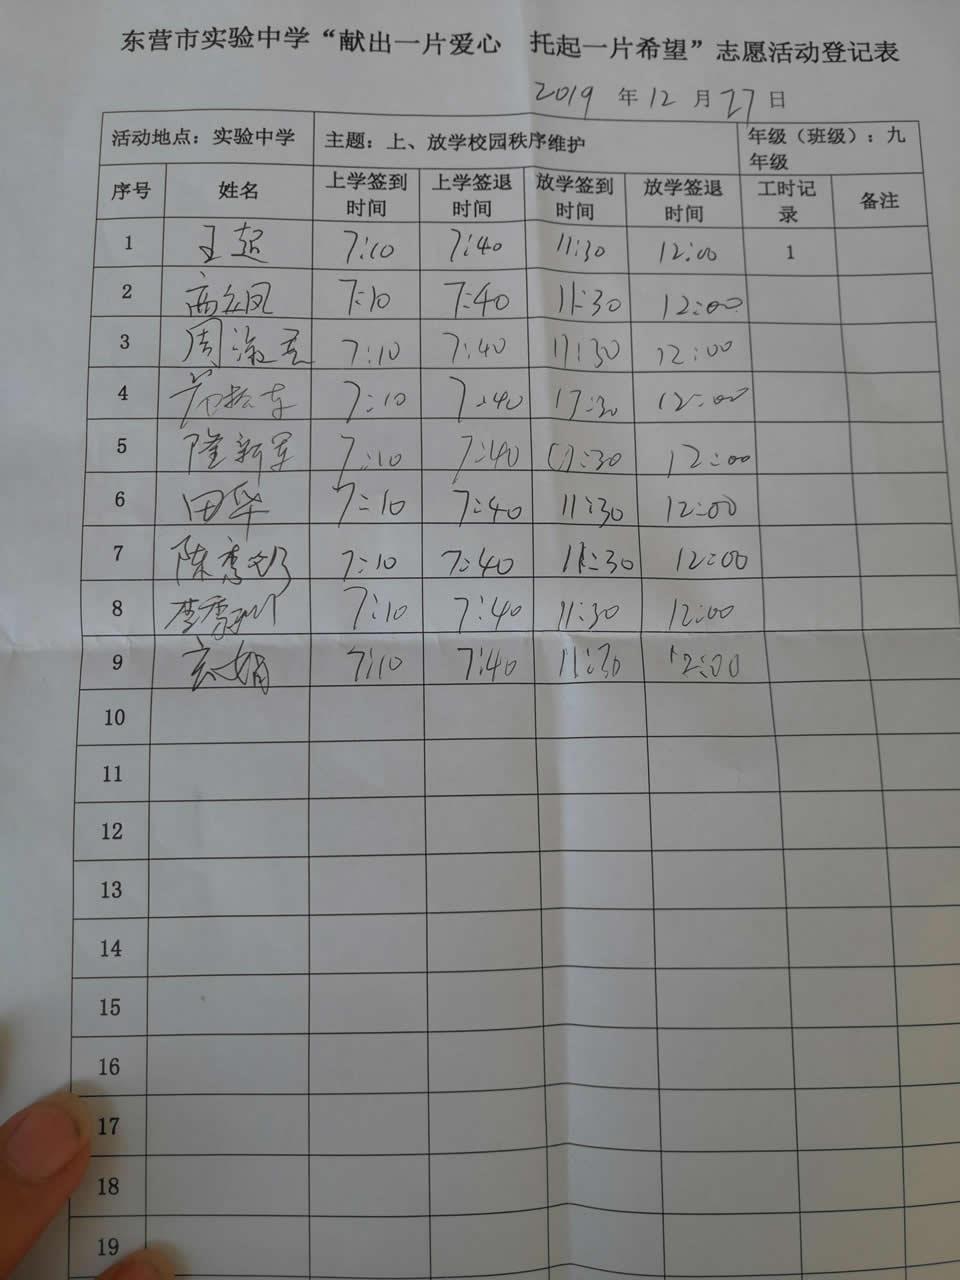 东营市实验中学“献出一片爱心 托起一片希望”志愿活动登记表
2019 年 12 月 27 日
活动地点：实验中学 主题：上、放学校园秩序维护 年级（班级）：九年级
序号 姓名 上学签到时间 上学签退时间 放学签到时间 放学签退时间 工时记录 备注
1 王超 7:10 7:40 11:30 12:00 1
2 7:10 7:40 11:30 12:00
3 周 7:10 7:40 11:30 12:00
4 7:10 7:40 12:00
5 隆新军 7:10 7:40 11:30 12:00
6 田华 7:10 7:40 11:30 12:00
7 陈秀 7:10 7:40 11:30 12:00
8 李秀 7:10 7:40 11:30 12:00
9 娟 7:10 7:40 11:30 12:00
10
11
12
13
14
15
16
17
18
19